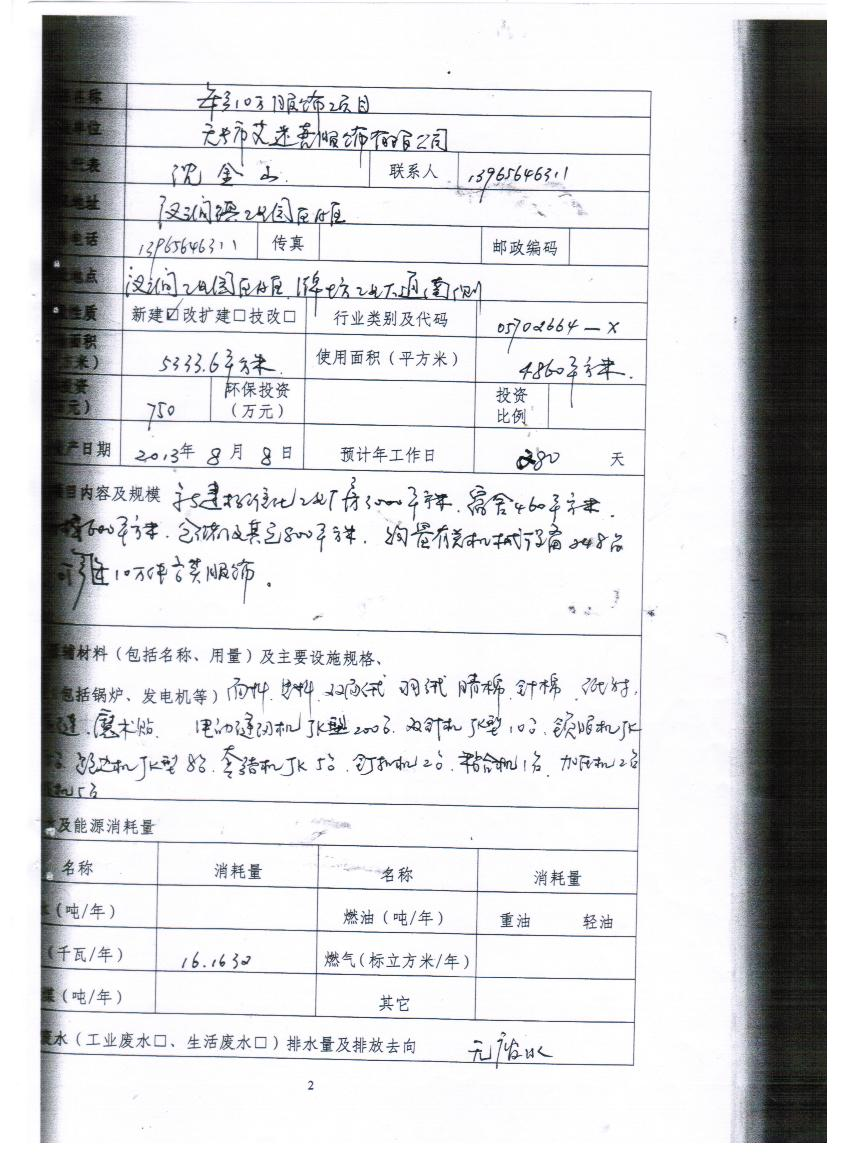 名称 年产10万服饰项目
单位 天长市艾迷莀服饰有限公司
代表 沈金山 联系人 13965646311
地址 汊涧镇工业园区
电话 13965646311 传真 邮政编码
地点 汊涧工业园区 潍坊工业大道南侧
性质 新建☑改扩建□技改□ 行业类别及代码 05702664-X
面积
方米) 5333.6平方米 使用面积(平方米) 4860平方米.
资 环保投资 投资
元) 750 (万元) 比例
产日期 2013年 8 月 8 日 预计年工作日 280 天
目内容及规模 新建标准化工业厂房3000平方米.宿舍460平方米.
600平方米.仓储及其它800平方米. 购置有关机械设备248台
可 10万件 服饰.
辅材料(包括名称、用量)及主要设施规格、
包括锅炉、发电机等) 面料. 里料. 羽绒 晴棉 针棉
魔术贴. 电动缝纫机JK型200台. 双针机JK型10台. 锁眼机JK
台. 机JK型8台. 套结机JK5台. 钉扣机2台. 粘合机1台. 加压机2台
机5台
及能源消耗量
名称 消耗量 名称 消耗量
(吨/年) 燃油(吨/年) 重油 轻油
(千瓦/年) 16.1632 燃气(标立方米/年)
煤(吨/年) 其它
废水(工业废水□、生活废水□)排水量及排放去向 无废水
2